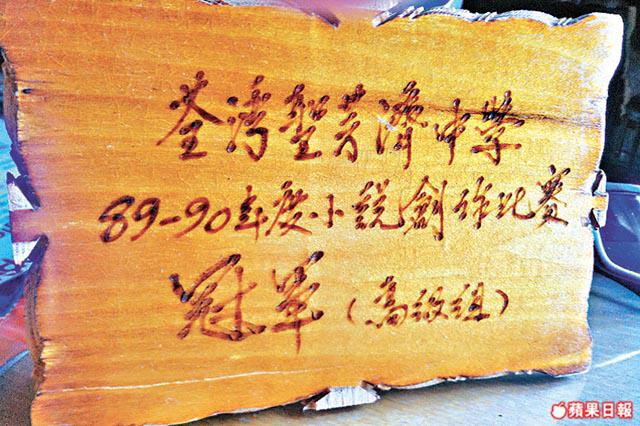 荃灣聖芳濟中學
89-90年度小説創作比賽
冠軍(高級組)
蘋果日報